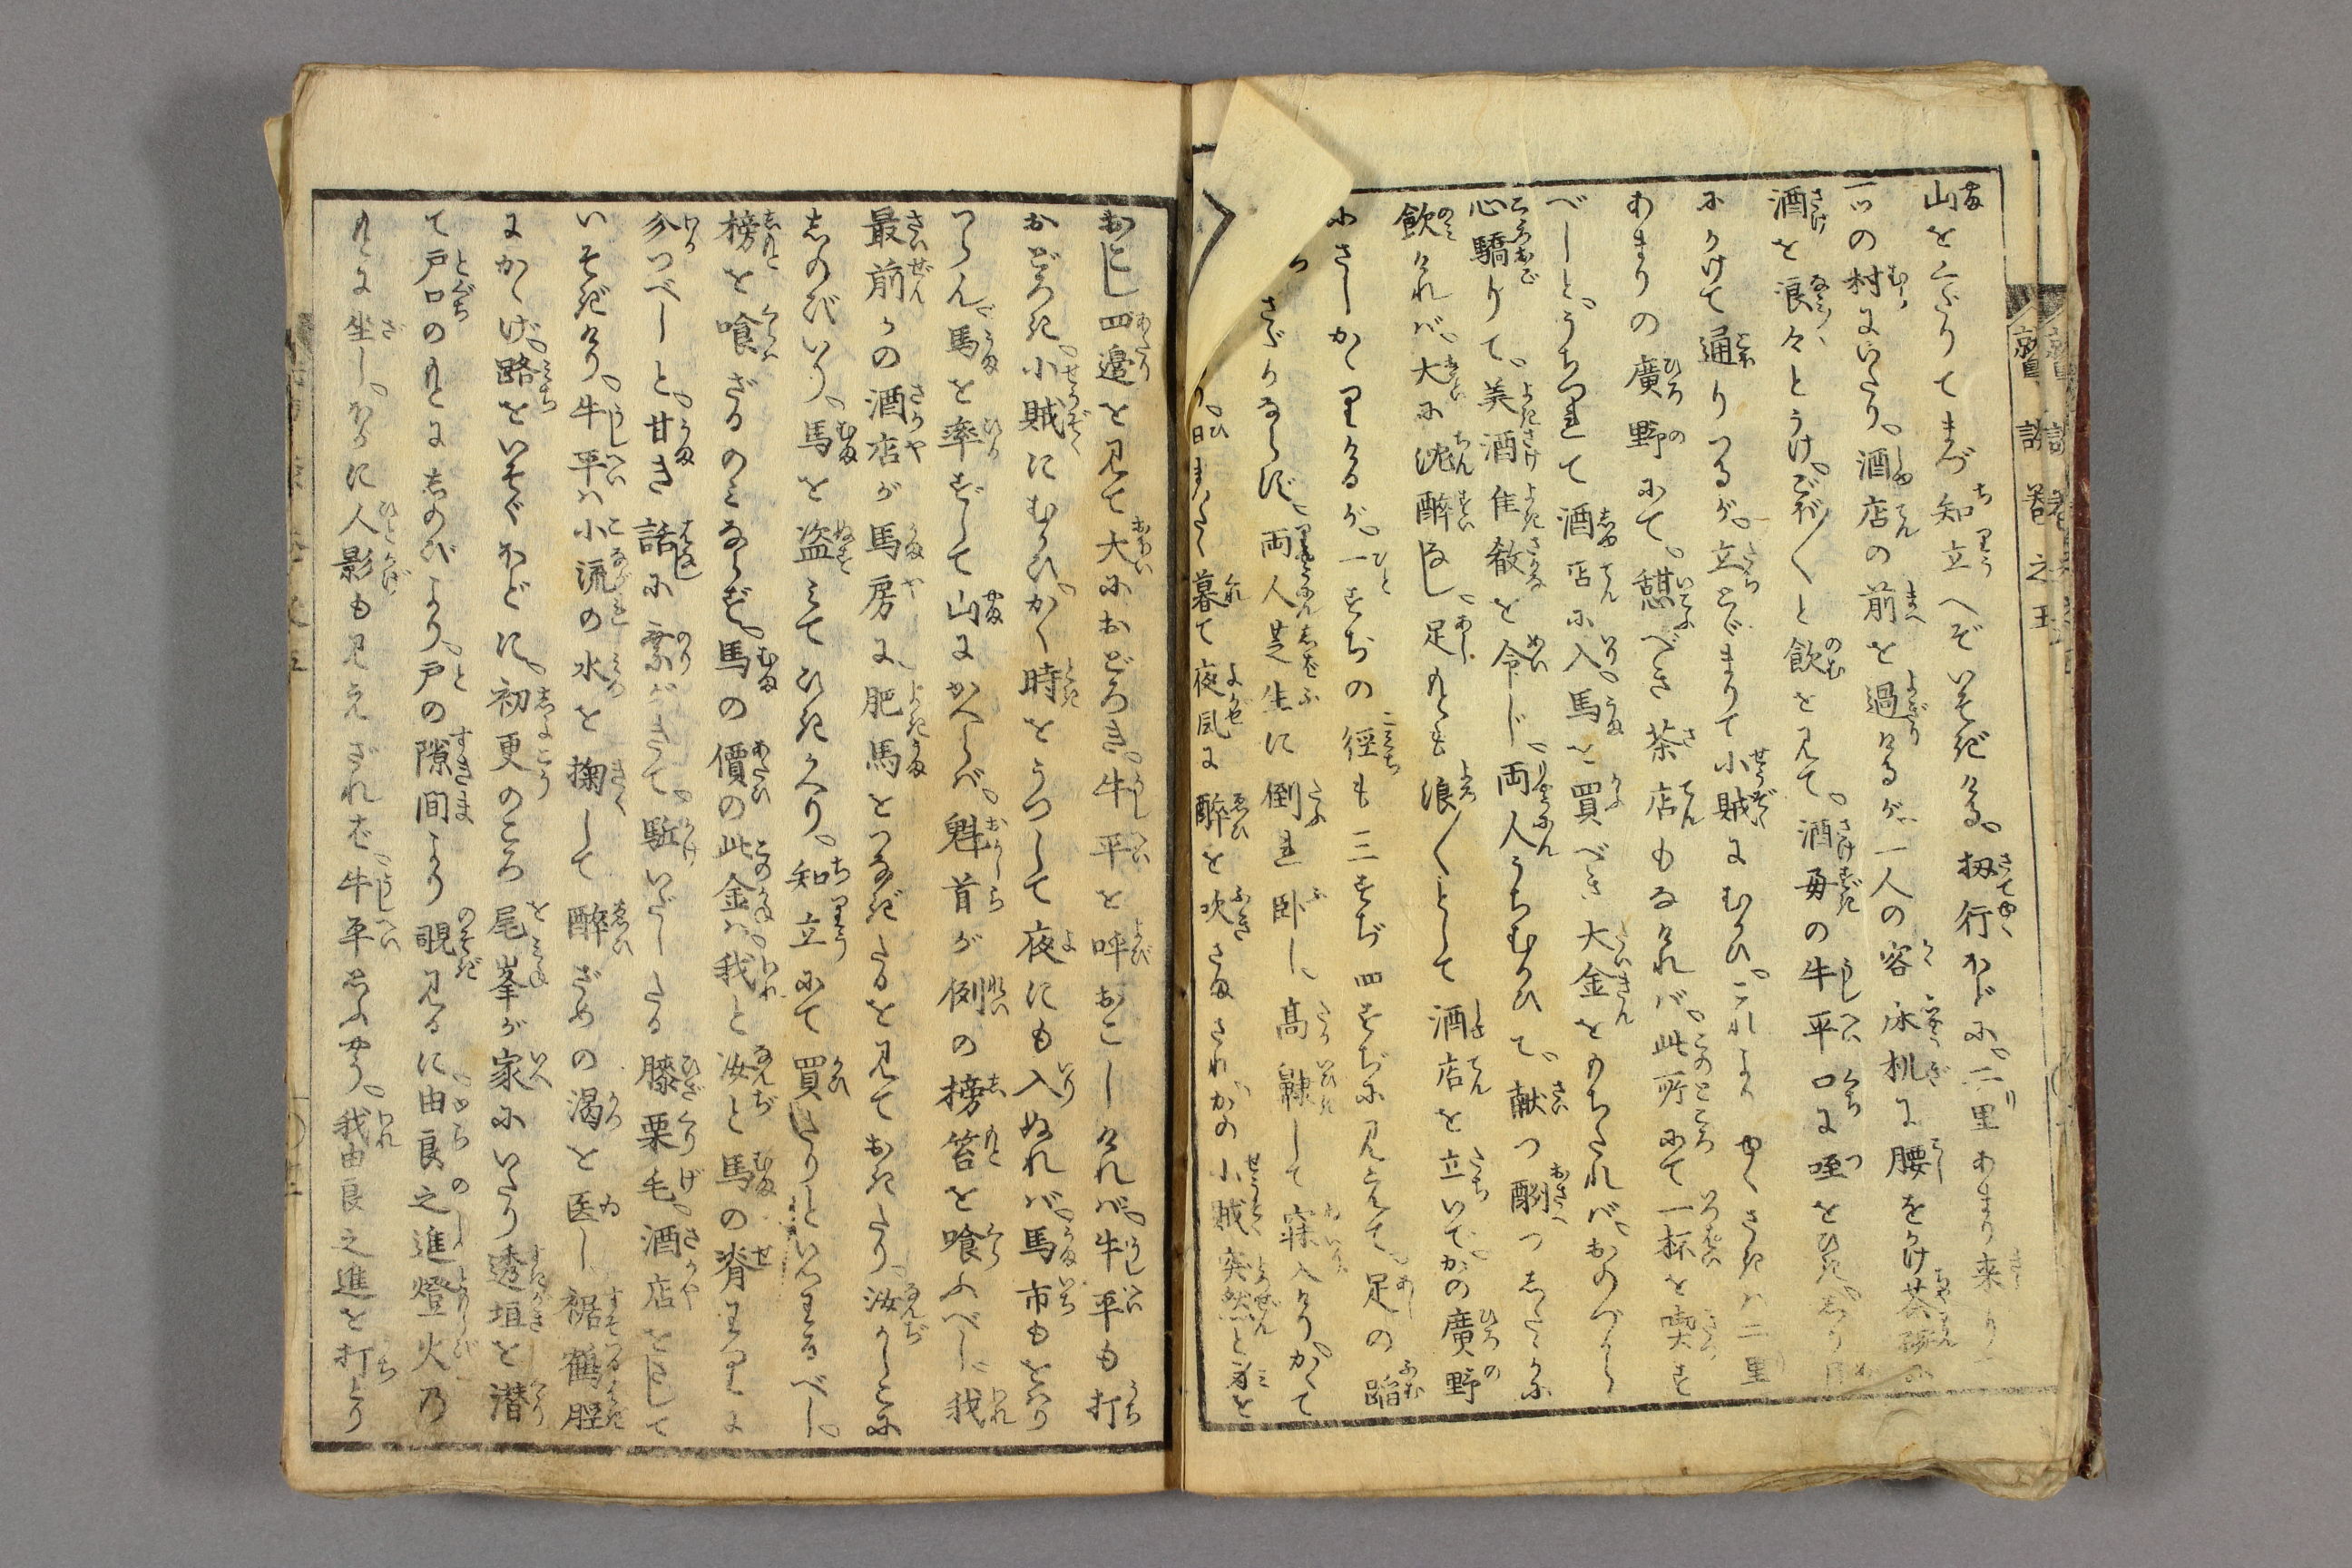 山をくだりてまづ知立へぞいそぎける。扨行かどに。二里あまり来りて
一ツの村にいたり。酒店の前を過けるが。一人の客床机に腰をかけ茶碗に
酒を浪々とうけ。ごぶ〳〵と飲を見て。酒毎の牛平口に唾をひき。
にかけて通りつるが。立とゞまりて小賊にむかひ。これより ゆくさきハ二里
あまりの廣野にて。憩べき茶店もなければ。此所にて一杯を喫す
べしと。うちつれて酒店に入。馬を買べき大金をもちたれば。おのづから
心驕りて。美酒佳殽を令じ。両人うちむかひて。献つ酬つしたゝかに
飲ければ。大に沈酔なし。足もとも浪〳〵として酒店を立いで。かの廣野
にさしかゝりけるが。一すぢの徑も三すぢ四すぢに見えて。足の蹈
さだかならず。両人芝生に倒れ臥し。高鼾して寐入けり。かくて
日まつたく暮て夜風に酔を吹さまされ。かの小賊突然と身を
おこし四邊を見て大におどろき。牛平を呼おこしければ。牛平も打
おどろき。小賊にむかひ。かく時をうつして夜にも入ぬれば。馬市もをハり
つらん。馬を率ずして山にかへらば。魁首が例の榜笞を喰ふべし。我
最前かの酒店が馬房に。肥馬をつなぎたるを見ておきたり。汝かしこに
しのびいり。馬を盗ミてひききたり。知立にて買たりといつわるべし。
榜を喰ざるのミならず。馬の價の此金ハ。我と汝と馬の脊わりに
分つべしと。甘き話に乗がきて。駈いだしたる膝栗毛。酒店をさして
いそぎけり。牛平ハ小流の水を掬して酔ざめの渇を医し裾鶴脛
にかゝげ。路をいそぐほどに。初更のころ尾峯が家にいたり透垣を潜
て戸口のもとにしのびより。戸の隙間より覗見るに。由良之進燈火乃
もとに坐し。ほかに人影も見えざれば。牛平思ふやう。我由良之進を打とり